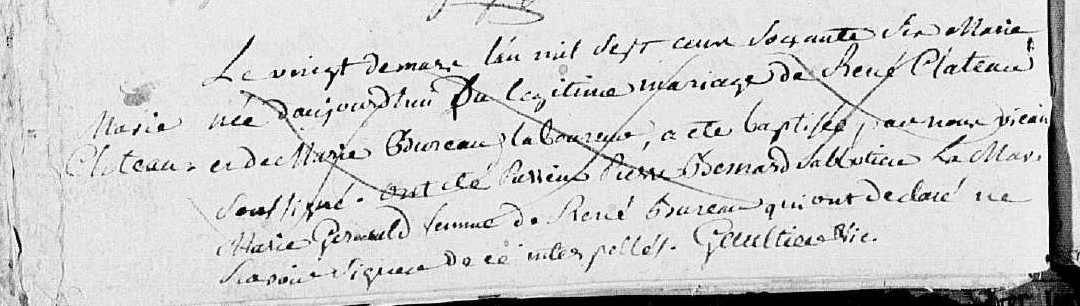 Le vingt de mars l'an mil sept cent soixante six Marie
Marie née d'aujourd'huy Du legitime mariage de René Clateau
Clateau. et de Marie Bureau laboureur, a été baptisée par nous vicaire
soussigné. ont été Parrein Pierre Bernard Sabbotier La Mar.
Marie femme de René Bureau qui ont declaré ne
scavoir signer de ce interpellés. Gaultier Vic.